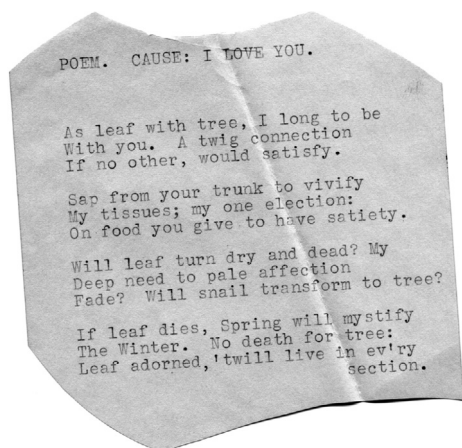 POEM. CAUSE: I LOVE YOU.
As leaf with tree, I long to be
With you. A twig connection
If no other, would satisfy.
Sap from your trunk to vivify
My tissues; my one election:
On food you give to have satiety.
Will leaf turn dry and dead? My
Deep need to pale affection
Fade? Will snail transform to tree?
If leaf dies, Spring will mystify
The Winter. No death for tree:
Leaf adorned,'twill live in ev'ry
section.